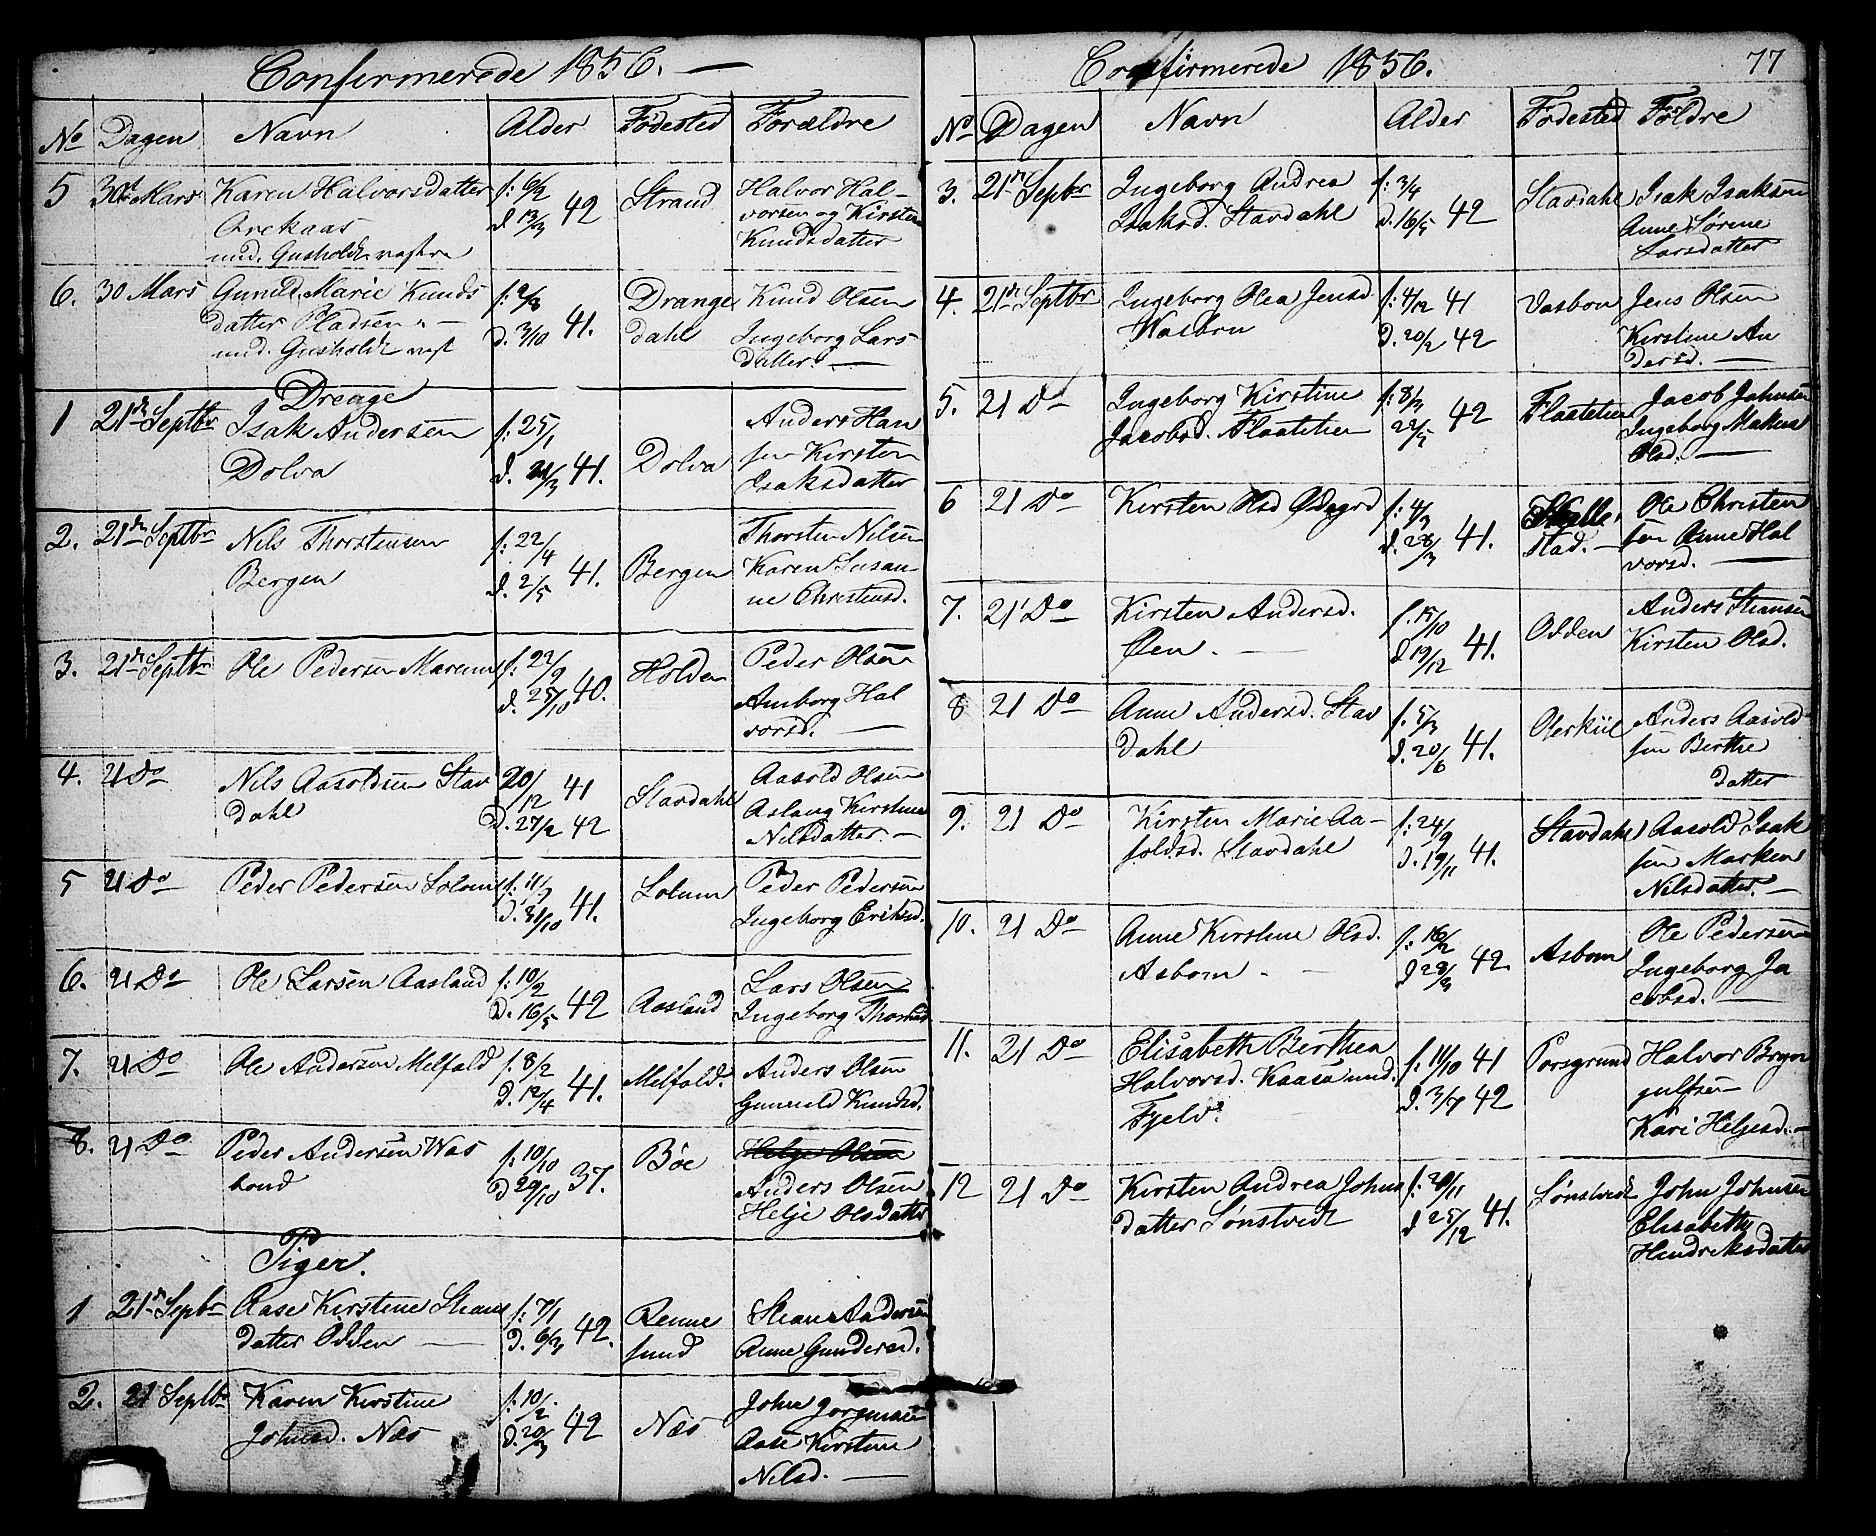 Confirmerede 1856. —
No Dagen Navn Alder Fødested Forældre
5 30te Mars Karen Halvorsdatter f: 6/2 d 13/3 42 Strand Halvor Hal-
Arekaas vorsen og Kirsten
und. Gusholdt Knudsdatter
6. 30 Mars Gunild Marie Knuds f: 2/8 d. 3/10 41. Drange Knud Olsen
datter Pladsen — dahl Ingeborg Lars
und. Gusholdt datter. —
Drenge
1 21de Septbr Isak Andersen f: 25/1 Anders Han
Dolva d. 21/3 41. Dolva sen Kirsten
Isaksdatter
2. 21de Septbr Nils Thorstensen f: 22/4 Thorsten Nilsen
Bergen d. 2/5 41. Bergen Karen Susan-
ne Christensd.
3. 21de Septbr Ole Pedersen f: 22/9 Holden Peder Olsen
d. 25/10 40. Amborg Hal
vorsd. —
4. 21 Do Nils Aasoldsen Stav 20/12 41 Stavdahl Aasold Olsen
dahl d. 27/2 42 Aslaug Kirstine
Nilsdatter. —
5 21 Do Peder Pedersen Solum f: 11/7 Solum Peder Pedersen
d. 31/10 41. Ingeborg Eriksd.
6. 21 Do Ole Larsen Aasland f: 10/2 Lars Olsen
d. 16/5 42 Aasland Ingeborg
7. 21 Do Ole Andersen Melfald f. 8/2 Anders Olsen
d. 12/4 41. Melfald. Gunnild Knudsd.
8. 21 Do Peder Andersen Was f. 10/10 Bøe Helge Olsen
bond d 29/10 37. Anders Olsen
Helje Olsdatter
Piger.
1 21de Septbr Aase Kirstine Steans f: 7/1 Renne Stean Andersen
datter Odden — d. 6/3 42. sund Anne Gundersd.
2. 21 Septbr Karen Kirstine f: 10/2 John Jørgensen
Johnsd. Næs d. 20/3 42 Næs Aase Kirstine
Nilsd. —
Confirmerede 1856. 77
No Dagen Navn Alder Fødested Foldre
3. 21de Septbr Ingeborg Andrea f: 3/4 Stavdahl Isak Isaksen
Isaksd. Stavdahl d. 16/5 42 Anne Sørene
Larsdatter
4. 21de Septbr Ingeborg Olea Jensd. f: 4/12 41 Vasbon Jens Olsen
Wasbon d. 20/2 42 Kirstine An
dersd. —
5. 21 Do Ingeborg Kirstine f: 8/3 42 Flaatetien Jacob Johnsen
Jacobsd. Flaatetien 22/5 Ingeborg
Olsd. —
6 21 Do Kirsten Olsd Ødegrd f: 4/2 Ole Christen
d. 28/3 41. stad. — sen Anne Hal
vorsd. —
7. 21 Do Kirsten Andersd. f. 15/10 Odden Anders Steansen
Øen. — d 19/12 41. Kirsten Olsd.
8 21 Do Anne Andersd. Stav f. 5/3 Olerkiil Anders Aasold
dahl d. 20/6 41. sen Berthe
datter
9. 21 Do Kirsten Marie Aa- f: 24/9 Stavdahl Aasold Isak
soldsd. Stavdahl d. 19/11 41. sen Marken
Nilsdatter. —
10. 21 Do Anne Kirstine Olsd. f: 16/2 Asbom Ole Pedersen
Asbom. — d 28/3 42. Ingeborg Ja
cobsd. —
11. 21 Do Elisabeth Berthea f. 11/10 41 Porsgrund Halvor Bryn
Halvorsd. Kaasa und. d. 3/7 42 julfsen
Fjeld. Kari Heljesd. —
12 21 Do Kirsten Andrea Johns f: 20/11 Sønstvedt John Johnsen
datter Sønstvedt d 25/12 41. Elisabeth
Hendriksdatter